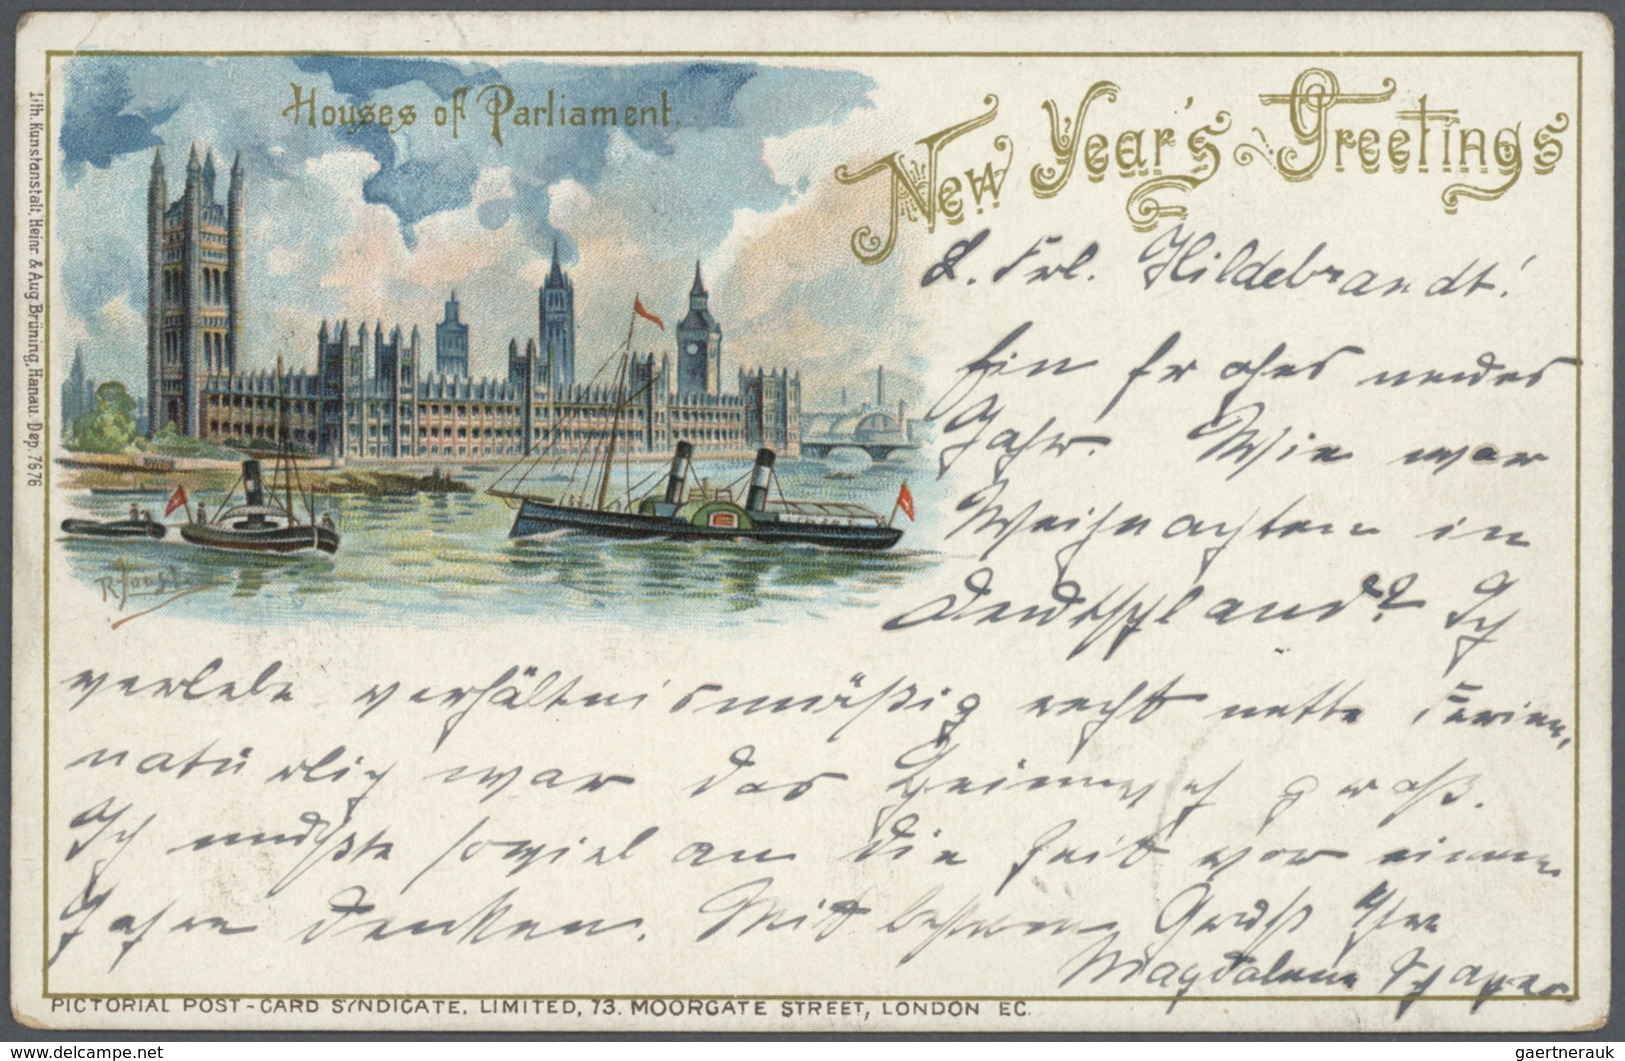 Houses of Parliament.
New Year's Greetings
L. Frl. Hildebrandt!
Ein frohes neues
Jahr. Wie war
Weihnachten in
Deutschland? Ich
verlebe verhältnismäßig recht nette Ferien,
natürlich war das Heimweh groß.
Ich mußte soviel an die Zeit vor einem
Jahre denken. Mit bestem Gruß Ihre
Magdalene Schaper.
R. Joost
Lith. Kunstanstalt, Heinr. & Aug. Brüning, Hanau. Dep. 7676
PICTORIAL POST-CARD SYNDICATE, LIMITED, 73. MOORGATE STREET, LONDON EC.
https://www.delcampe.net
gaertnerauk